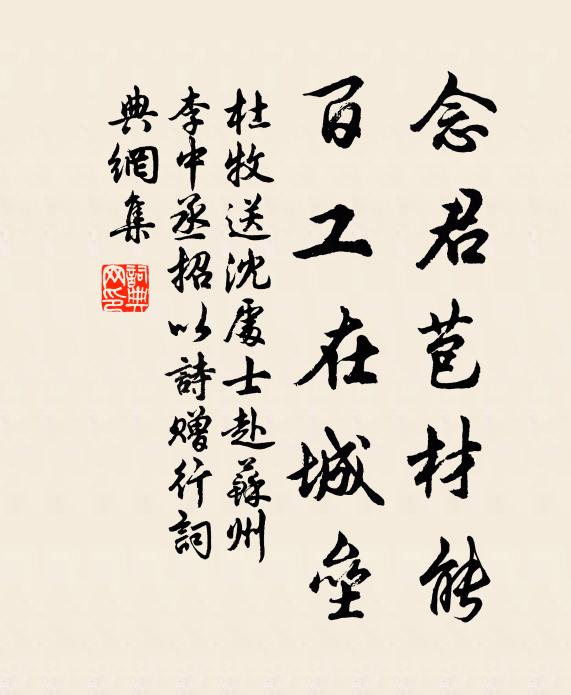 念君苞材能
百工在城壘
杜牧送沈處士赴蘇州
李中丞招以詩贈行詞
典網集
詞典網印